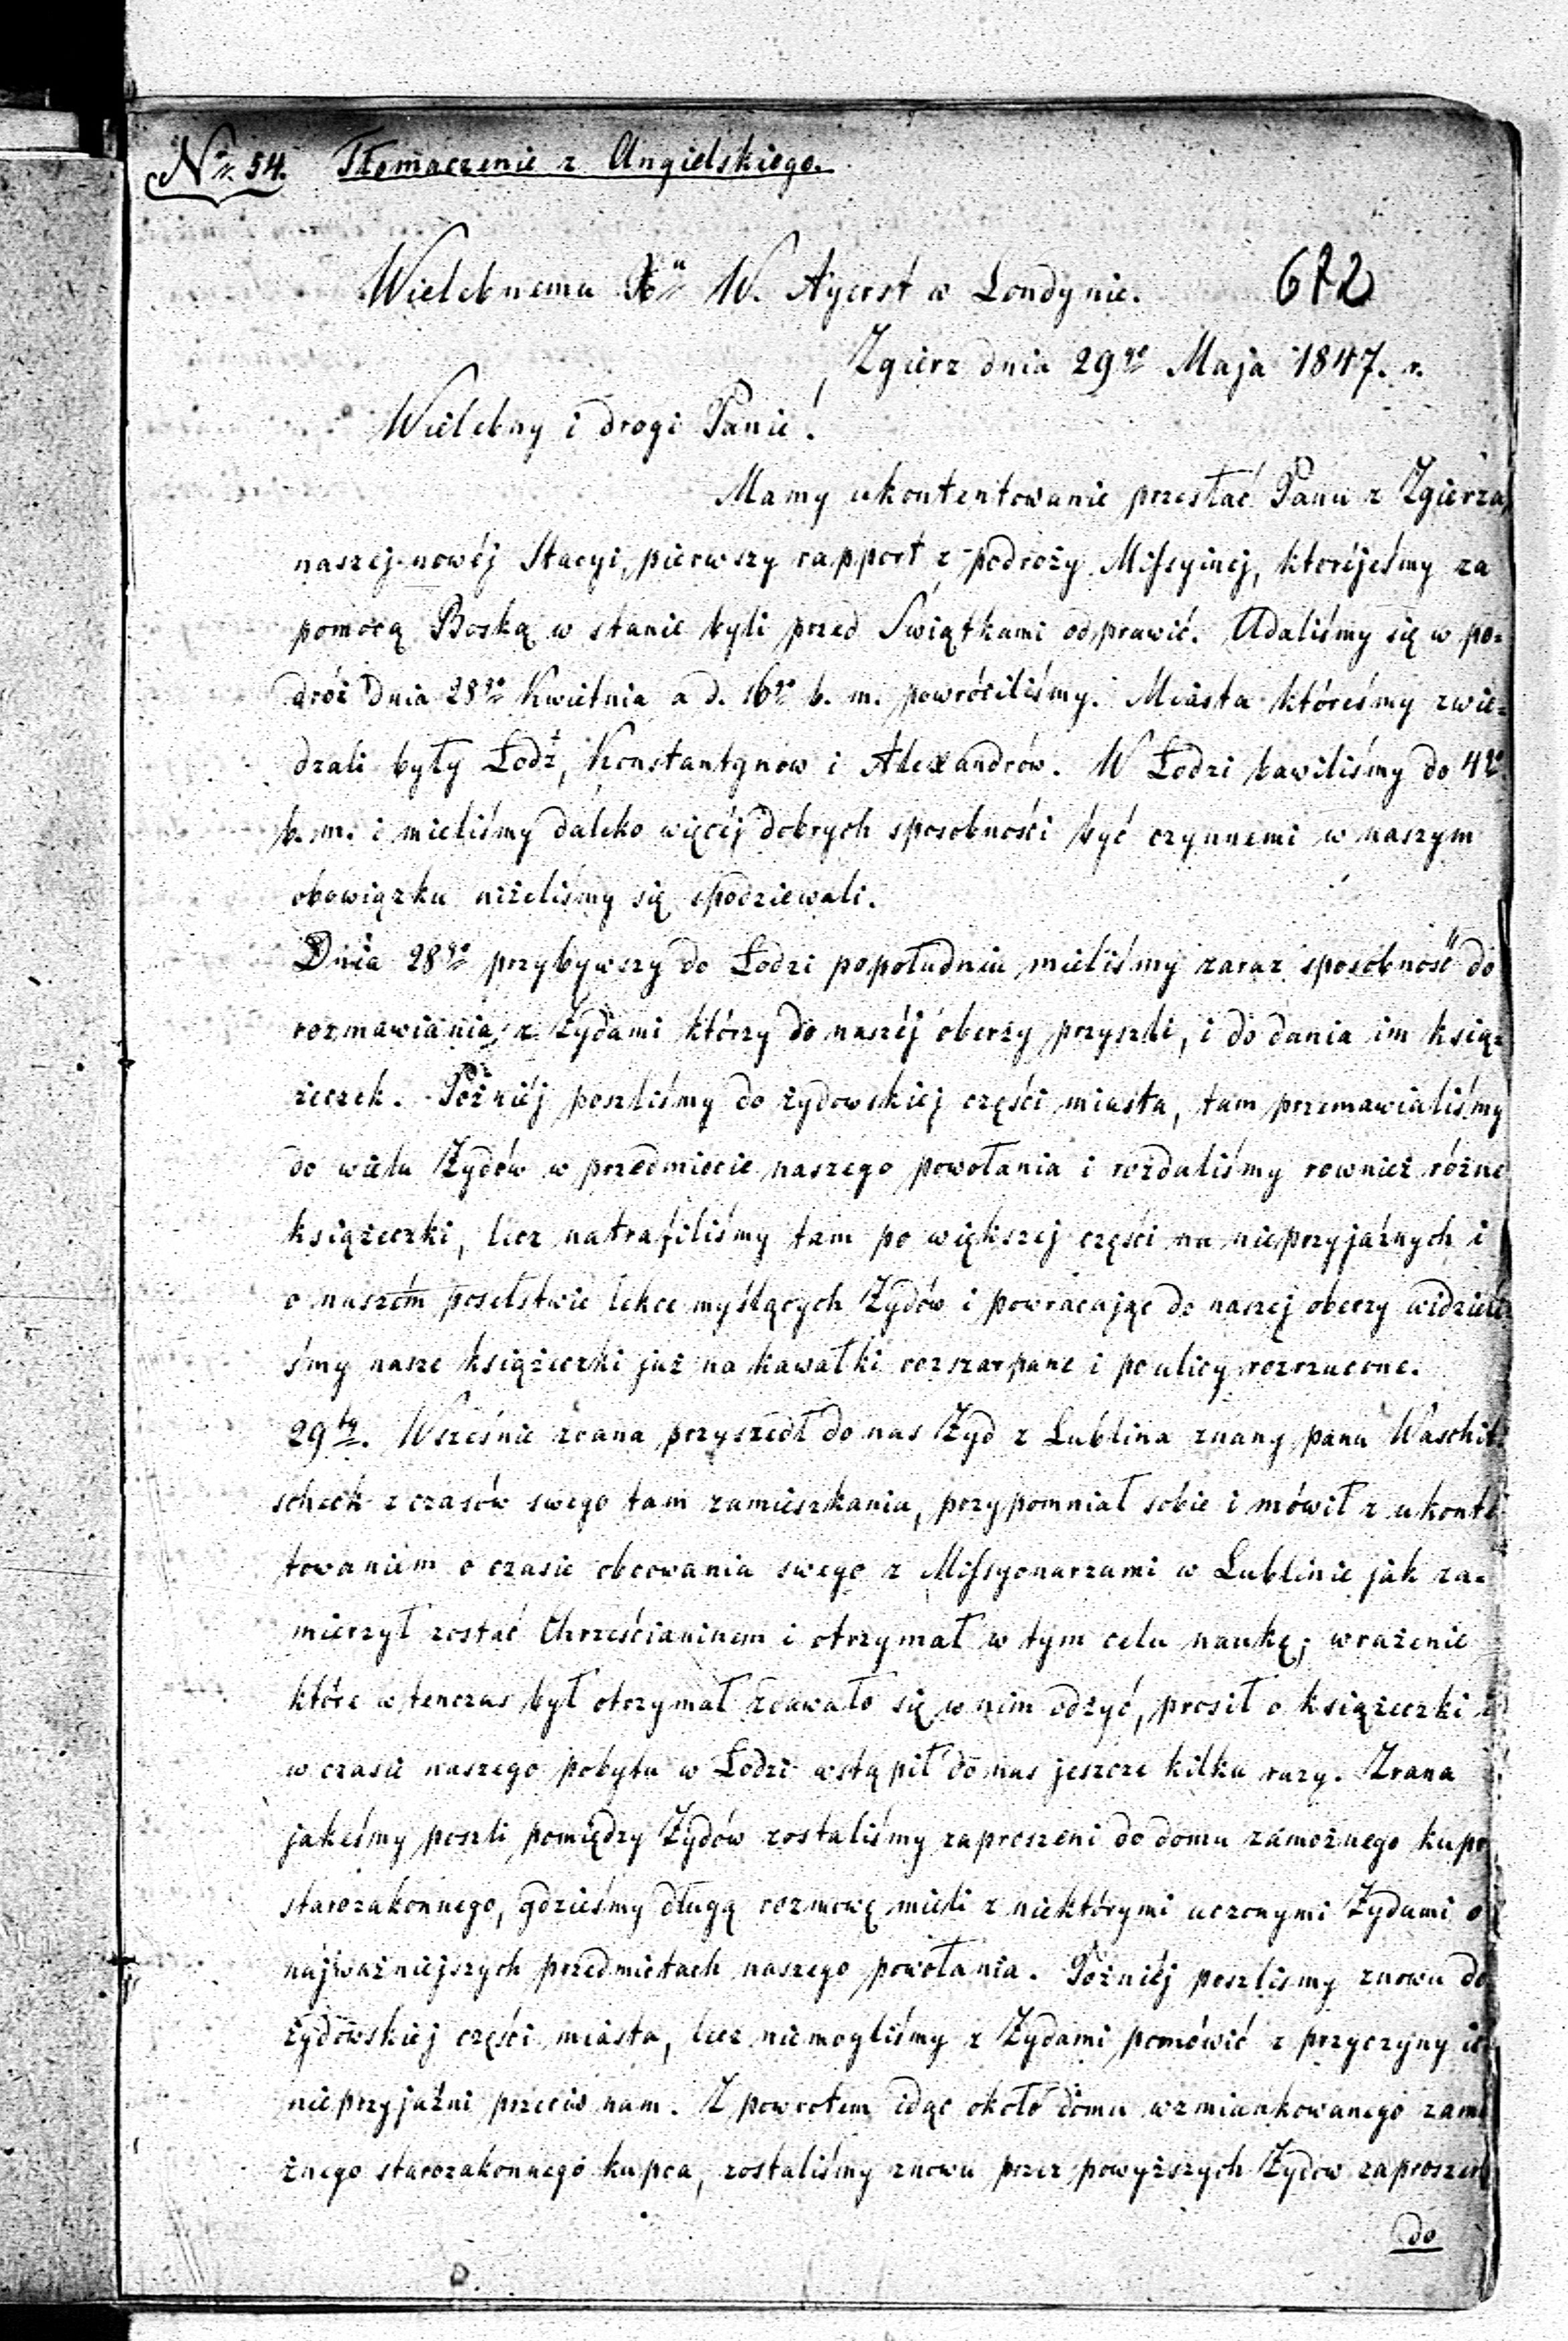 Nro 54. Tłomaczenie z Angielskiego.
Wielebnemu Xu W. Ayerst w Londynie. 672
Zgierz dnia 29go Maja 1847. r.
Wielebny i drogi Panie!
Mamy ukontentowanie przesłać Panu z Zgierza,
naszej nowéj Stacyi, pierwszy rapport z podroży Missyinej, któréjeśmy za
pomocą Boską w stanie byli przed Świątkami odprawić. Udaliśmy się w po=
dróż dnia 28go Kwietnia a d. 16go b. m. powróciliśmy. Miasta któreśmy zwie=
dzali były Łodź, Konstantynow i Alexandrów. W Łodzi bawiliśmy do 4go
b. m. i mieliśmy daleko więcéj dobrych sposobności być czynnemi w naszym
obowiązku niżeliśmy się spodziewali.
Dnia 28go przybywszy do Łodzi popołudniu mieliśmy zaraz sposobność do
rozmawiania z Żydami którzy do naszéj oberży przyszli, i do dania im ksią=
żeczek. Późniéj poszliśmy do żydowskiej części miasta, tam przemawialiśmy
do wielu Żydów w przedmiocie naszego powołania i rozdaliśmy rownież różne
książeczki, lecz natrafiliśmy tam po większej części na nieprzyjaźnych i
o naszém poselstwie lekce myślących Żydów i powracając do naszéj oberzy widzieli
śmy nasze książeczki już na kawałki rozszarpane i po ulicy rozrzucone.
29ty. Wcześnie zrana przyszedł do nas Żyd z Lublina znany panu Waschit=
scheck z czasów swego tam zamieszkania, przypomniał sobie i mówił z ukonte
towaniem o czasie obcowania swego z Missyonarzami w Lublinie jak za=
mierzył zostać Chrześcianinem i otrzymał w tym celu naukę; wrażenie
które wtenczas był otrzymał zdawało się w nim odżyć, prosił o książeczki i
w czasie naszego pobytu w Łodzi wstąpił do nas jeszcze kilka razy. Zrana
jakeśmy poszli pomiędzy Żydów zostaliśmy zaproszeni do domu zamożnego kupca
starozakonnego, gdzieśmy długą rozmowę mieli z niektórymi uczonymi Żydami o
najważniejszych przedmiotach naszego powołania. Poźniéj poszlismy znowu do
żydowskiej części miasta, lecz niemogliśmy z Żydami pomówić z przyczyny ich
nieprzyjaźni przeciw nam. Z powrotem idąc około domu wzmiankowanego zamo
żnego starozakonnego kupca, zostaliśmy znowu przez powyższych Żydow zaproszeni
do